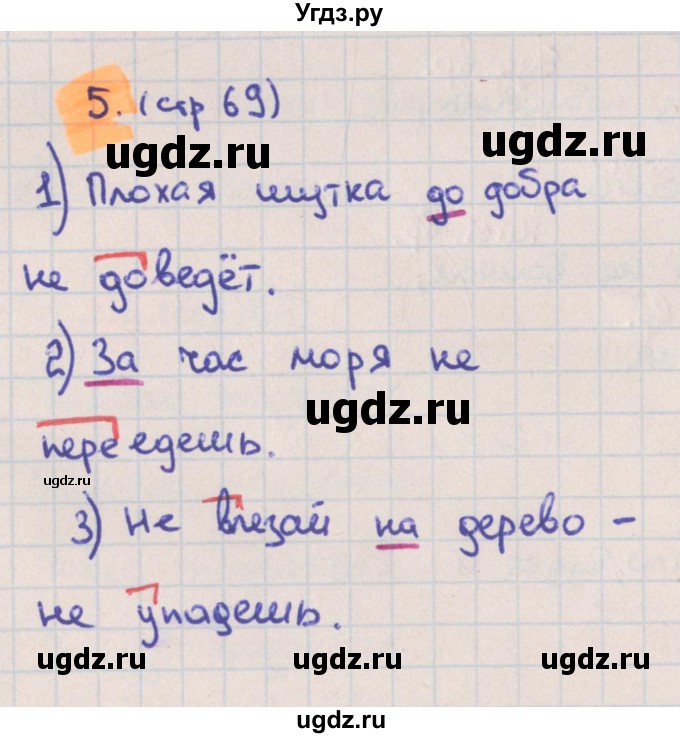 Угдз.ру
5. (стр 69)
ugdz.ru
ugdz.ru
1) Плохая шутка до добра
не доведёт.
2) За час моря не
ugdz.ru
переедешь.
ugdz.ru
3) Не влезай на дерево -
не упадешь.
ugdz.ru
ugdz.ru
ugdz.ru
ugdz.ru